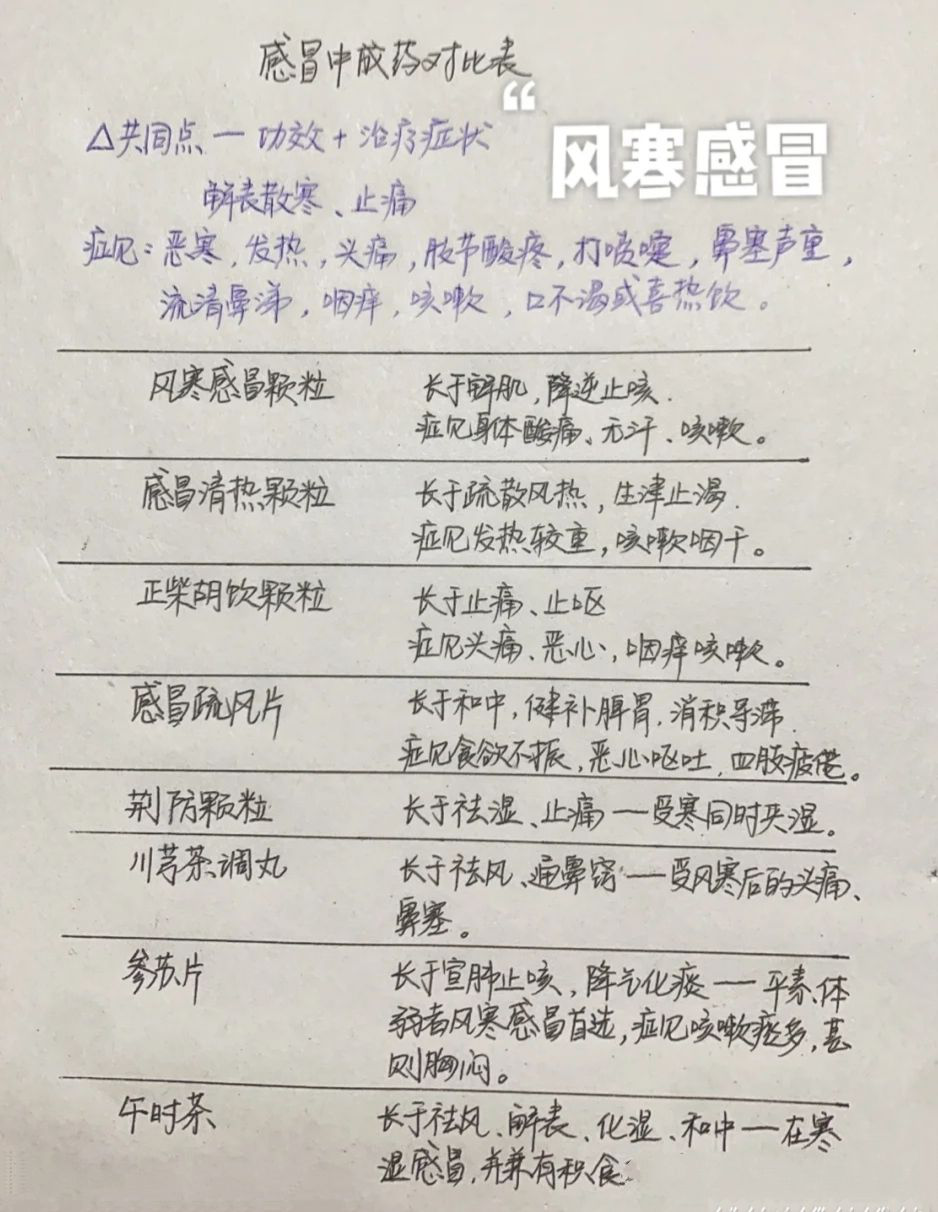 感冒中成药对比表
“
风寒感冒
△共同点 — 功效 + 治疗症状
解表散寒、止痛
症见：恶寒，发热，头痛，肢节酸疼，打喷嚏，鼻塞声重，
流清鼻涕，咽痒，咳嗽，口不渴或喜热饮。
风寒感冒颗粒
长于解肌，降逆止咳.
症见身体酸痛、无汗、咳嗽。
感冒清热颗粒
长于疏散风热，生津止渴.
症见发热较重，咳嗽咽干。
正柴胡饮颗粒
长于止痛、止呕
症见头痛、恶心，咽痒咳嗽。
感冒疏风片
长于和中，健补脾胃，消积导滞.
症见食欲不振，恶心呕吐，四肢疲倦。
荆防颗粒
长于祛湿、止痛 — 受寒同时夹湿。
川芎茶调丸
长于祛风、通鼻窍 — 受风寒后的头痛、
鼻塞。
参苏片
长于宣肺止咳，降气化痰 — 平素体
弱者风寒感冒首选，症见咳嗽痰多，甚
则胸闷。
午时茶
长于祛风、解表、化湿、和中 — 在寒
湿感冒，并兼有积食